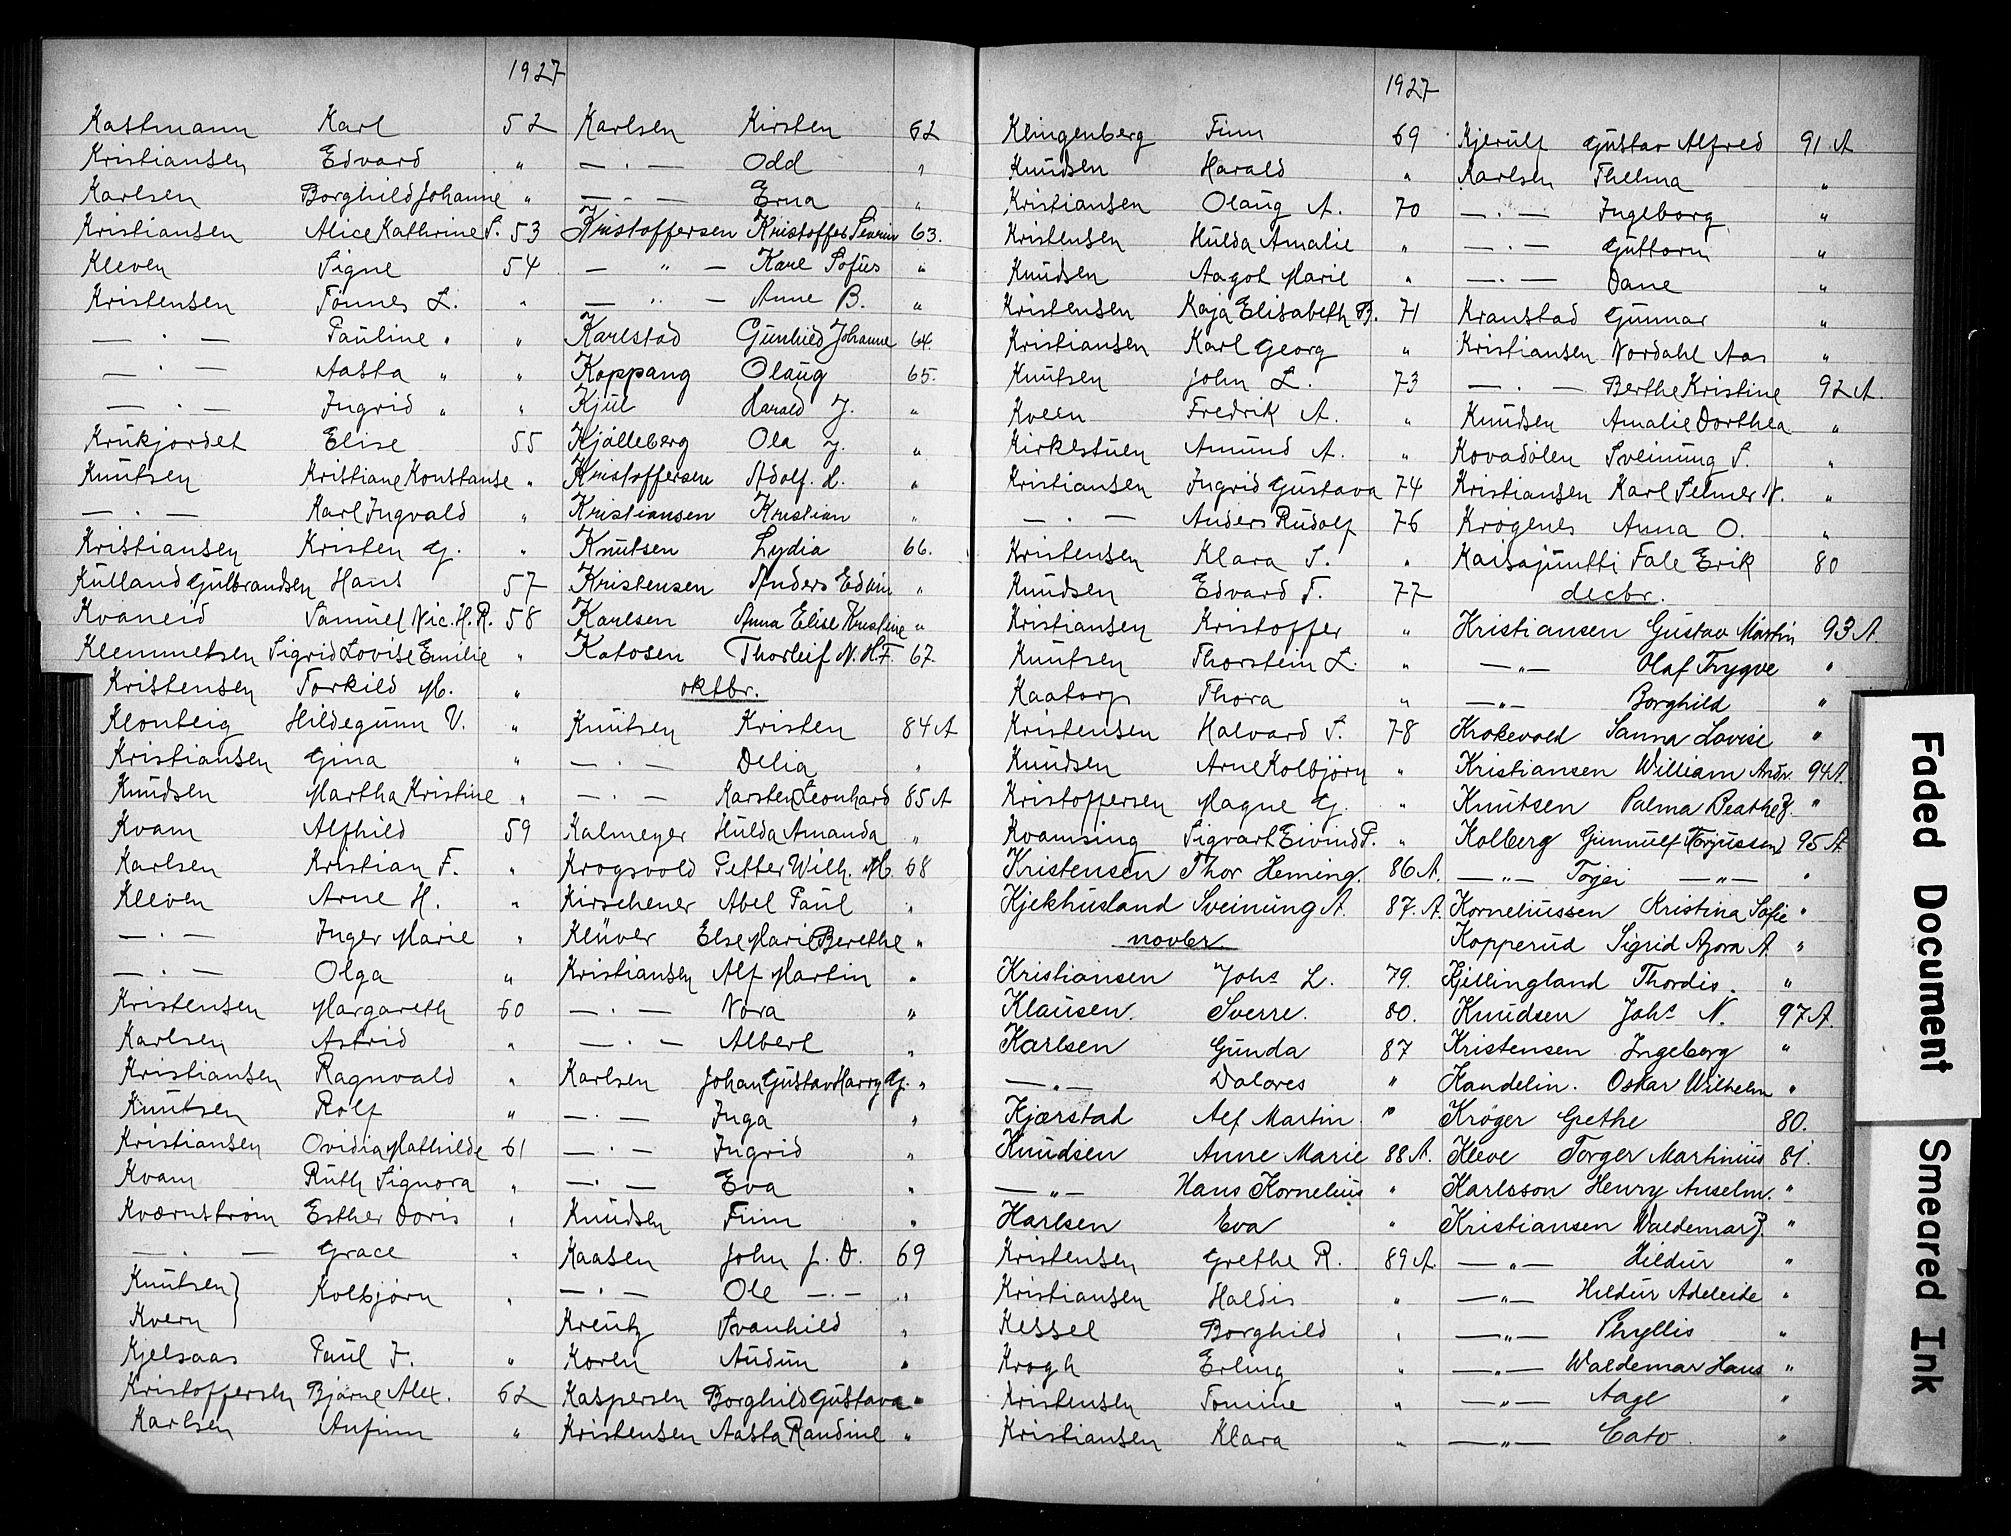 1927
Kastmann Karl 52
Kristiansen Edvard "
Karlsen Borghild Johanne "
Kristiansen Alice Kathrine S. 53
Kleven Signe 54
Kristensen Tønnes L. "
— . — Pauline " "
— . — Aasta " "
— . — Ingrid " "
Krukjordet Elise 55
Knutsen Kristiane Konstanse "
— . — Karl Ingvald "
Kristiansen Kristen G. "
Kulland Gulbrandsen Hans 57
Kvaneid Samuel Nic. H. R. 58
Klemmetsen Sigrid Lovise Emilie "
Kristensen Torkild M. "
Klonteig Hildegunn V. "
Kristiansen Gina "
Knudsen Martha Kristine "
Kvam Alfhild 59
Karlsen Kristian F. "
Kleven Arne H. "
— . — Inger Marie "
— . — Olga "
Kristensen Margareth 60
Karlsen Astrid "
Kristiansen Ragnvald "
Knutsen Rolf "
Kristiansen Ovidia Mathilde 61
Kvam Ruth Signora "
Kværnstrøm Esther Doris "
— . — Grace "
Knutsen }
Kolbjørn "
Kvern }
Kjelsaas Paul F. "
Kristoffersen Bjarne Alex. 62
Karlsen Anfinn "
Karlsen Kirsten 62
— . — Odd "
— . — Erna "
Kristoffersen Kristoffer Severin 63.
— " — Kare Sofus "
— " — Anne B. "
Karlstad Gunhild Johanne 64.
Koppang Olaug 65.
Kjul Harald J. "
Kjølleberg Ola J. "
Kristoffersen Adolf. L. "
Kristiansen Kristian "
Knutsen Lydia 66.
Kristensen Anders Edvin "
Karlsen Anna Elise Kristine "
Katosen Thorleif N. H. F. 67.
oktbr.
Knutsen Kristen 84 A
— . — Delia "
— . — Karsten Leonhard 85 A
Kalmeyer Hulda Amanda "
Krogsvold Petter Wilh. M. 68
Kirschener Abel Paul "
Kluver Else Marie Berethe "
Kristiansen Alf Martin "
— . — Nora "
— . — Albert "
Karlsen Johan Gustav Harry G. "
— . — Inga "
— . — Ingrid "
— . — Eva "
Knudsen Finn "
Kaasen John J. D. 69
— . — Ole — . — "
Kreutz Svanhild "
Koren Audun "
Kaspersen Borghild Gustava "
Kristensen Aasta Randine "
1927
Klingenberg Finn 69
Knudsen Harald "
Kristiansen Olaug A. 70
Kristensen Hulda Amalie "
Knudsen Aagot Marie "
Kristensen Kaja Elisabeth B. 71
Kristiansen Karl Georg "
Knutsen John L. 73
Kveen Fredrik A. "
Kirkestuen Amund A. "
Kristiansen Ingrid Gustava 74
— . — Anders Rudolf 76
Kristensen Klara S. "
Knudsen Edvard T. 77
Kristiansen Kristoffer "
Knutsen Thorstein L. "
Kaatorp Thora "
Kristensen Halvard S. 78
Knudsen Arne Kolbjørn "
Kristoffersen Magne G. "
Kvamsing Sigvart Eivind P. "
Kristensen Thor Heming. 86 A.
Kjekhusland Sveinung A. 87. A.
novbr.
Kristiansen Johs L. 79.
Klausen. Sverre. 80.
Karlsen Gunda 87
— " — Dolores "
Kjærstad Alf Martin. "
Knudsen Anne Marie 88 A.
— " — Hans Kornelius "
Karlsen Eva "
Kristensen Grethe R. 89 A
Kristiansen Haldis "
Kessel Borghild "
Krogh Erling "
Kristensen Tomine "
Kristiansen Klara "
Kjerulf Gustav Alfred 91 A
Karlsen Thelma "
— . — Ingeborg "
— . — Guttorm "
— . — Dane "
Kranstad Gunnar "
Kristiansen Nordahl Aas "
— . — Berthe Kristine 92 A.
Knudsen Amalie Dorthea "
Kovadolen Sveinung S. "
Kristiansen Karl Selmer N. "
Krogenes Anna O. "
Kaisajuntti Fale Erik 80
decbr.
Kristiansen Gustav Martin 93 A.
— " — Olaf Trygve "
— " — Borghild "
Krokevold Sanna Lovise "
Kristiansen William Andr. 94 A.
Knutsen Palma Beathe J. "
Kolberg Gunnulf (Torjussen) 95 A
— " — Torjei — " — "
Korneliussen Kristina Sofie "
Kopperud Sigrid Azora A. "
Kjellingland Thordis. "
Knudsen Johs N. 97 A.
Kristensen Ingeberg "
Kandelin. Oskar Wilhelm "
Krøger Grethe 80.
Kleve Torger Martinius 81.
Karlsson Henry Anselm. "
Kristiansen Waldemar J. "
— " — Hildur "
— " — Hildur Adeleide "
— " — Phyllis "
— " — Waldemar Hans "
— " — Aage "
— " — Cato "
Faded Document
Smeared Ink